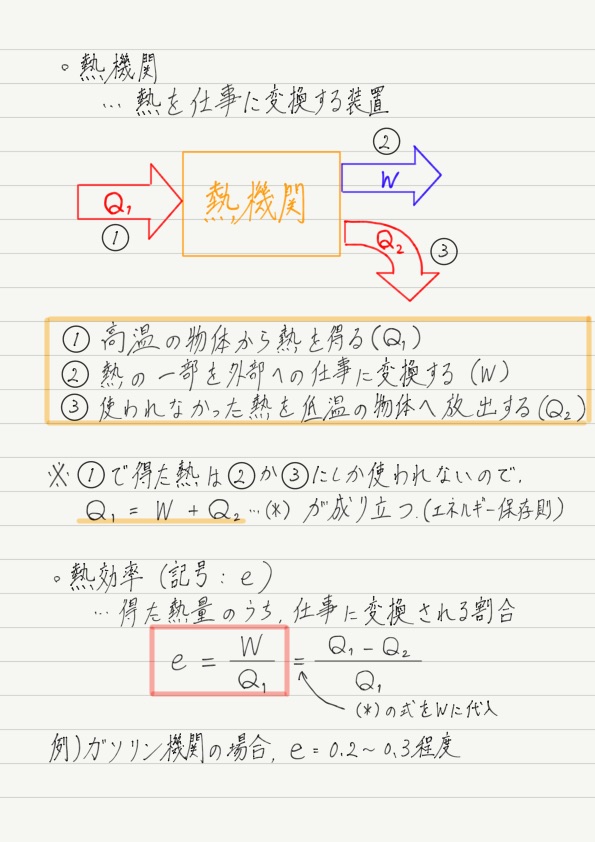 ◦ 熱機関
… 熱を仕事に変換する装置
②
Q₁
熱機関
W
①
Q₂
③
① 高温の物体から熱を得る(Q₁)
② 熱の一部を外部への仕事に変換する (W)
③ 使われなかった熱を低温の物体へ放出する(Q₂)
※ ①で得た熱は②か③にしか使われないので,
Q₁ = W + Q₂ …(*) が成り立つ.(エネルギー保存則)
◦ 熱効率 (記号: e)
… 得た熱量のうち, 仕事に変換される割合
e = W/Q₁ = (Q₁ − Q₂)/Q₁
(*)の式をWに代入
例)ガソリン機関の場合, e = 0.2 〜 0.3 程度